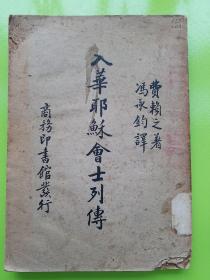 費賴之著
馮承鈞譯
入華耶穌會士列傳
商務印書館發行